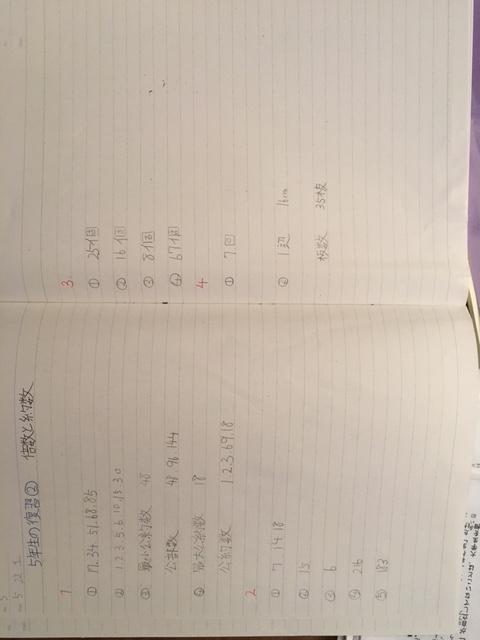 5年生の復習② 倍数と約数
1
① 17.34.51.68.85
② 1.2.3.5.6.10.15.30
③ 最小公約数 48
公部数 48.96.144
④ 最大公約数 18
公約数 1.2.3.6.9.18
2
① 7.14.18
② 15
③ 6
④ 216
⑤ 183
3
① 25個
② 16個
③ 8個
④ 67個
4
① 7回
② 1辺 16cm
板数 35枚